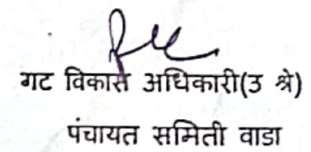 गट विकास अधिकारी(उ श्रे)
पंचायत समिती वाडा